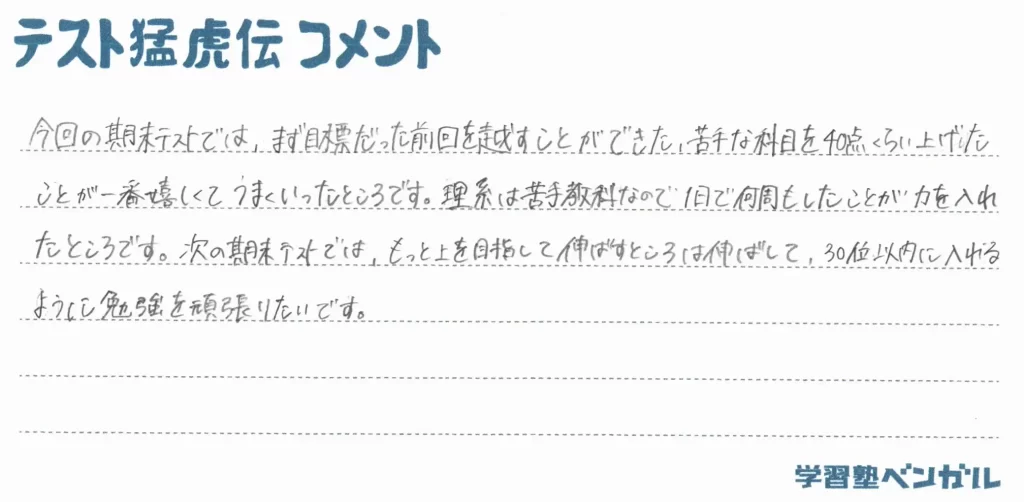 テスト猛虎伝 コメント
今回の期末テストでは、まず目標だった前回を越すことができた、苦手な科目を40点くらい上げた
ことが一番嬉しくてうまくいったところです。理系は苦手教科なので1日で何周もしたことが力を入れ
たところです。次の期末テストでは、もっと上を目指して伸ばすところは伸ばして、30位以内に入れる
ように勉強を頑張りたいです。
学習塾ベンガル